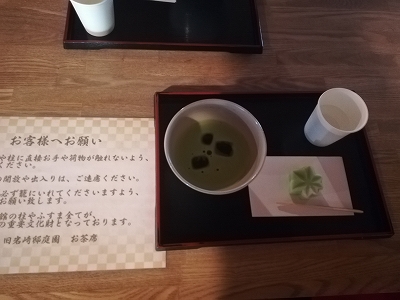 お客様へお願い
や柱に直接お手や荷物が触れないよう、
ください。
の開放や出入りは、ご遠慮ください。
必ず籠にいれてくださいますよう、
お願い致します。
館の柱やふすま全てが、
の重要文化財となっております。
旧岩崎邸庭園 お茶席